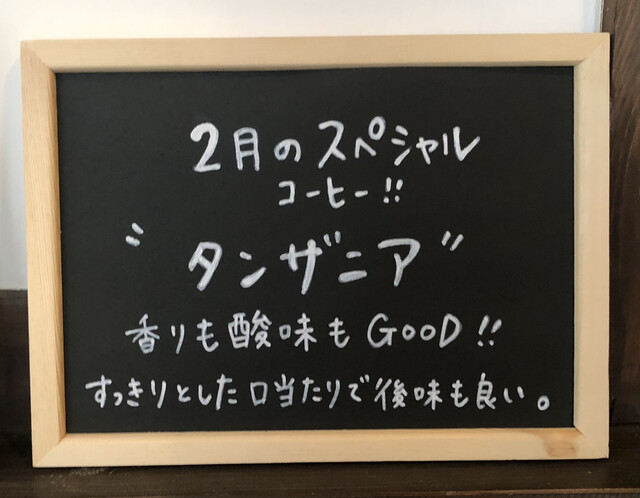 2月のスペシャル
コーヒー!!
"タンザニア"
香りも酸味もGOOD!!
すっきりとした口当たりで後味も良い。